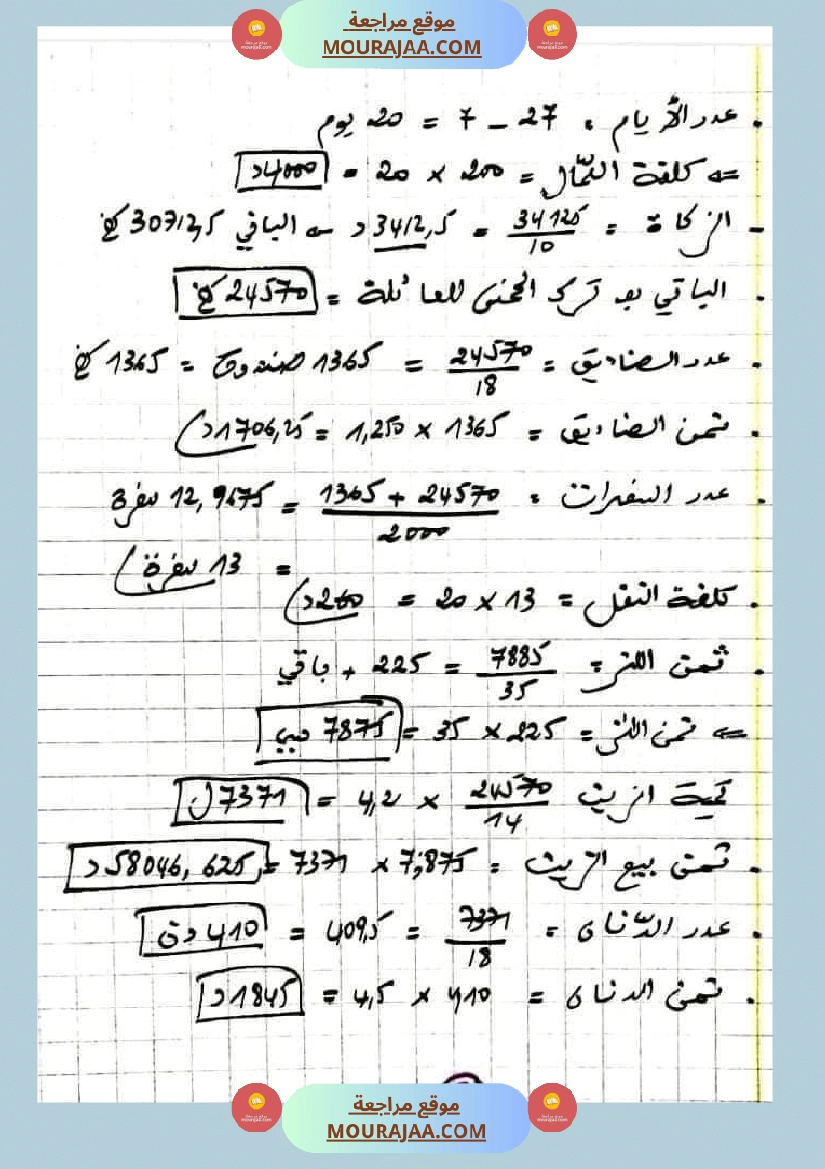 موقع مراجعة
MOURAJAA.COM
عدد الأيام : 27 - 7 = 20 يوم
⇐ كلفة العمّال = 200 × 20 = 4000د
- الزكاة = 34125/10 = 3412,5 د ⇐ الباقي 30712,5 كغ
. الباقي بعد ترك الخمس للعائلة = 24570 كغ
. عدد الصناديق = 24570/18 = 1365 صندوق = 1365 كغ
. ثمن الصناديق = 1365 × 1,250 = 1706,25د
. عدد السفرات : 24570 + 1365/2000 = 12,9675 سفرة
= 13 سفرة
. كلفة النقل = 13 × 20 = 260د
. ثمن اللتر = 7885/35 = 225 + باقي
⇐ ثمن اللتر = 225 × 35 = 7875 مي
كمية الزيت 24570/14 × 4,2 = 7371 ل
. ثمن بيع الزيت : 7,875 × 7371 = 58046,625 د
. عدد الدّنان = 7371/18 = 409,5 = 410 دن
. ثمن الدنان = 410 × 4,5 = 1845 د
موقع مراجعة
MOURAJAA.COM